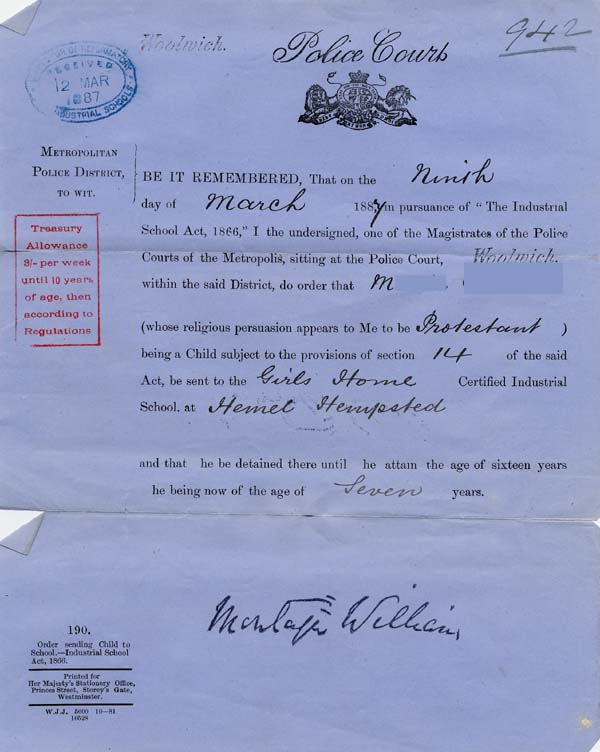 942
Woolwich. Police Court
RECEIVED
12 MAR
1887
INDUSTRIAL SCHOOLS
METROPOLITAN
POLICE DISTRICT,
TO WIT.
BE IT REMEMBERED, That on the Ninth
day of March 1887 in pursuance of "The Industrial
School Act, 1866," I the undersigned, one of the Magistrates of the Police
Courts of the Metropolis, sitting at the Police Court, Woolwich.
within the said District, do order that M
(whose religious persuasion appears to Me to be Protestant )
being a Child subject to the provisions of section 14 of the said
Act, be sent to the Girls Home Certified Industrial
School. at Hemel Hempsted
and that he be detained there until he attain the age of sixteen years
he being now of the age of Seven years.
Treasury
Allowance
3/- per week
until 10 years
of age, then
according to
Regulations
Montagu Williams
190.
Order sending Child to
School.—Industrial School
Act, 1866.
Printed for
Her Majesty's Stationery Office,
Princes Street, Storey's Gate,
Westminster.
W.J.J. 5000 10—81
10528